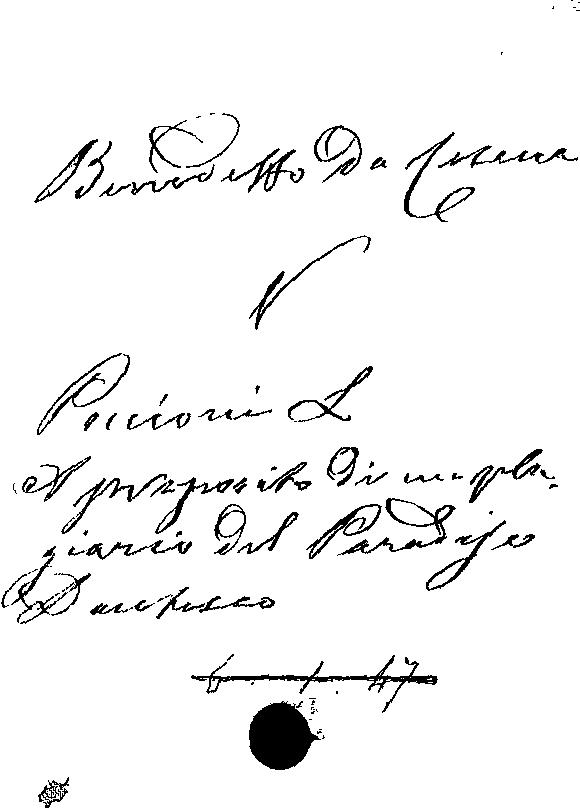 Benedetto Da Cesena
V
Piccioni L
A proposito di un pla-
giario del Paradiso
Dantesco
6. 1. 47